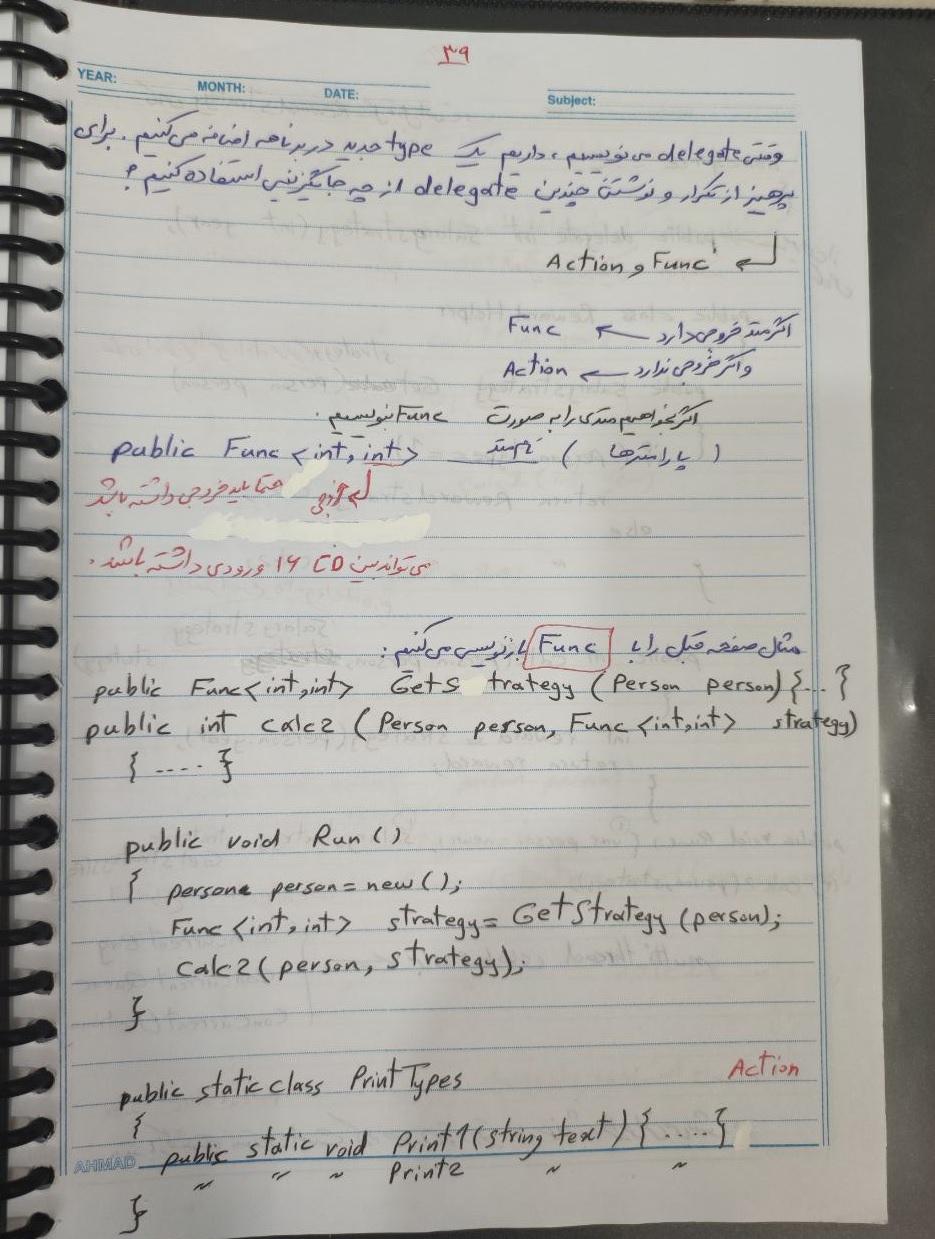 ۳۹
YEAR: MONTH: DATE: Subject:
وقتی delegate می نویسیم، داریم یک type جدید در برنامه اضافه می کنیم. برای
پرهیز از تکرار و نوشتن چندین delegate از چه جایگزینی استفاده کنیم؟
Action و Func
اگر متد خروجی دارد ← Func
و اگر خروجی ندارد ← Action
اگر بخواهیم متدی را به صورت Func بنویسیم.
public Func <int, int> ـــــ (پارامترها)
حتما باید خروجی داشته باشد
می تواند بین 0 تا ۱۶ ورودی داشته باشد.
مثال صفحه قبل را با Func بازنویسی می کنیم:
public Func<int,int> GetS trategy (Person person) {... {
public int calc2 (Person person, Func <int,int> strategy)
{ .... }
public void Run ()
{ persone person = new ();
Func <int, int> strategy = GetStrategy (person);
calc2 (person, strategy);
}
Action
public static class Print Types
{
public static void Print1 (string text) { .... }
〃 〃 〃 Print2 〃 〃
}
AHMAD